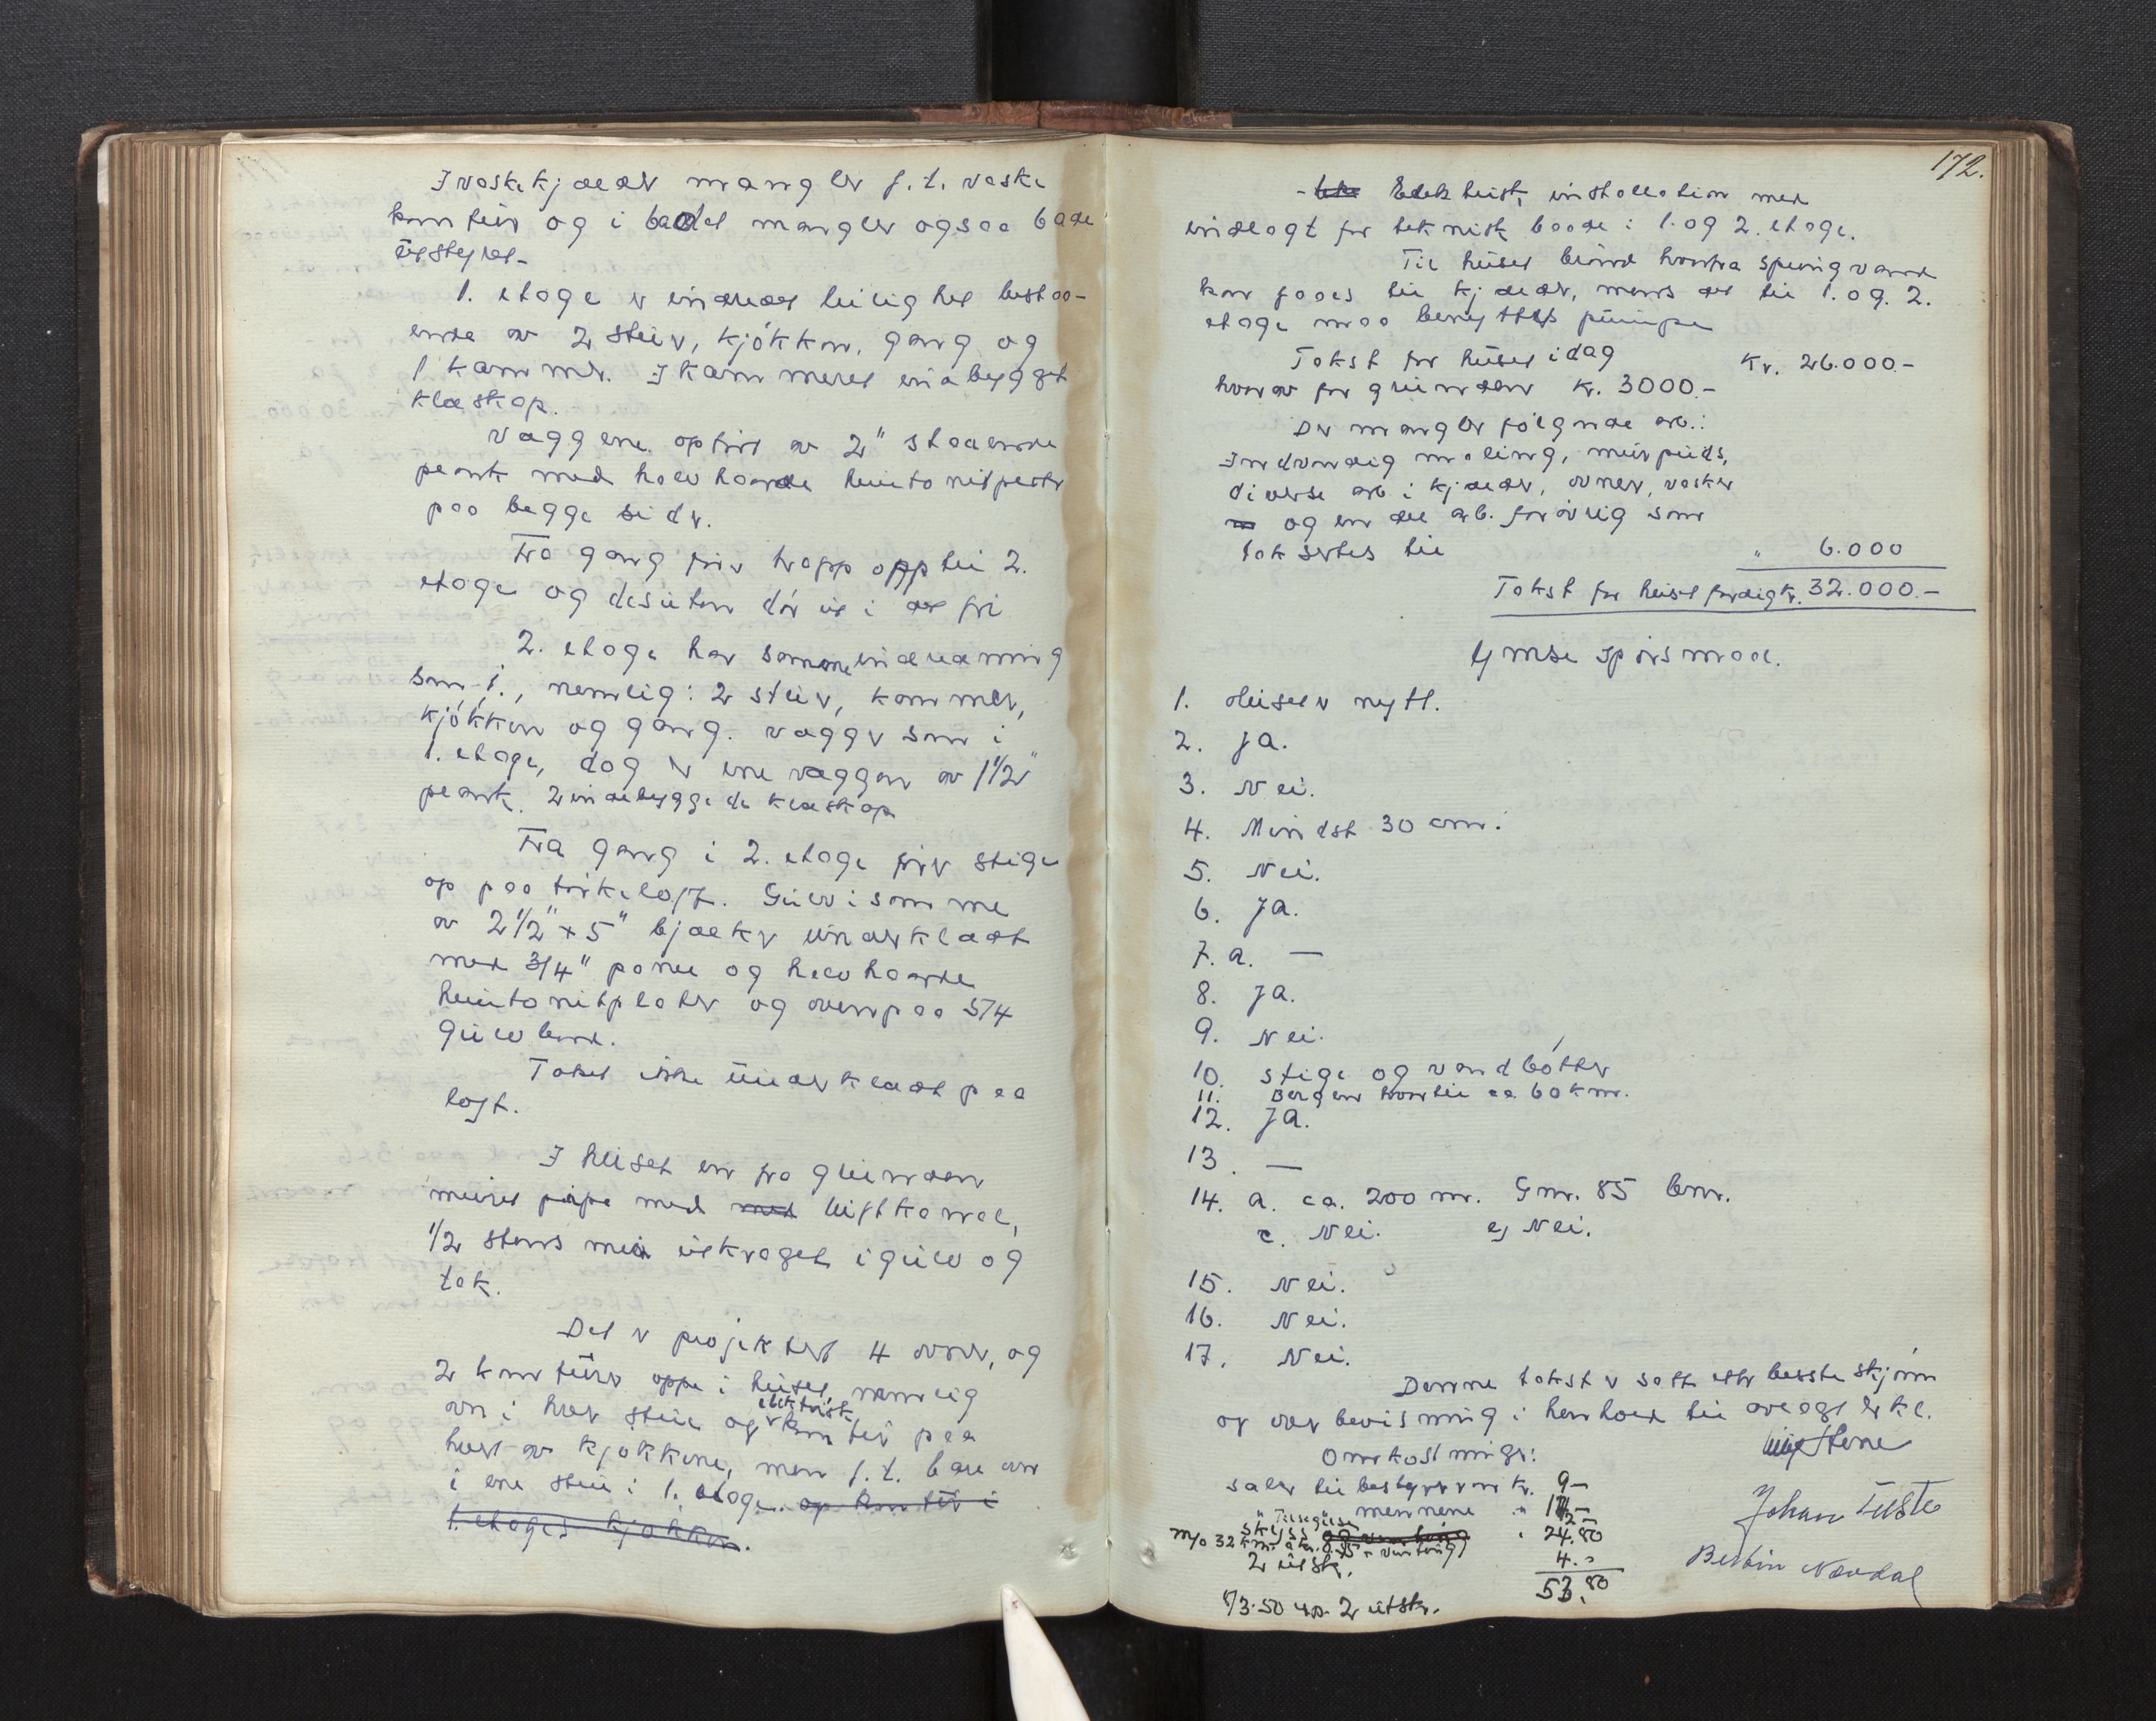 I vaskekjæder mangler f.t. vaske
komfur og i badet mangler ogsaa bade
utstyret-
1. etage er indredet leilighet bestaa-
ende av 2 stuer, kjøkken, gang og
1 kammer. I kammeret indbygget
klæskap.
Væggene opført av 2" staaende
plank med halvhaarde huntonitplater
paa begge sider.
Fra gang fører trapp opp til 2.
etage og desuten dør ut i det fri
2. etage har samme indredning
som 1., nemlig: 2 stuer, kammer,
kjøkken og gang. Vægger som i
1. etage, dog er ene væggen av 1½"
plank. 2 indebyggede klæskap
Fra gang i 2. etage fører stige
op paa tørkeloft. Gulv i samme
av 2½" x 5" bjælker underklædt
med 3/4" panel og halvhaarde
huntonitplater og ovenpaa 5/4
gulvbord.
Taket ikke underklædt paa
loft.
I huset en fra grunden
muret pipe med med luftkanal,
½ stens mur utkraget i gulv og
tak.
Det er projektert 4 ovner, og
2 komfurer oppe i huset, nemlig
ovn i hver stue og elektrisk komfur paa
hvert av kjøkkene, men f.t. bare ovn
i ene stue i 1. etage. og komfur i
1. etages kjøkken.
172.
- Elektrisk installation med
indlagt for teknisk baade i 1. og 2. etage.
Til huset brønd hvorfra springvand
kan faaes til kjæder, mens det til 1. og 2.
etage maa benyttes pumpe
Takst for huset idag Kr. 26.000.-
hvorav for grunden Kr. 3000.-
Der mangler følgende arb.:
Indvendig maling, murpuds,
diverse arb i kjæder, ovner, vasker
og en del arb. forøvrig som
taksertes til " 6.000
Takst for huset ferdig kr. 32.000.-
Ymse spørsmaal.
1. Huset er nytt.
2. Ja.
3. Nei.
4. Mindst 30 cm.
5. Nei.
6. Ja.
7. a. —
8. Ja.
9. Nei.
10. Stige og vandbøtter
11. Bergen hvortil ca 60 km.
12. Ja.
13. —
14. a. ca. 200 m. Gnr. 85 bnr.
c. Nei. e) Nei.
15. Nei.
16. Nei.
17. Nei.
Denne takst er satt etter beste skjønn
og overbevisning i henhold til avlagt erkl.
Omkostninger:
Salær til bestyreren kr. 9-
" mennene "
Skyss " 24.80
m/o 32 km
2 utskr. 4.-
53.80
1/3-50 2 utskr.
Johan Tuste
Bertin Nævdal